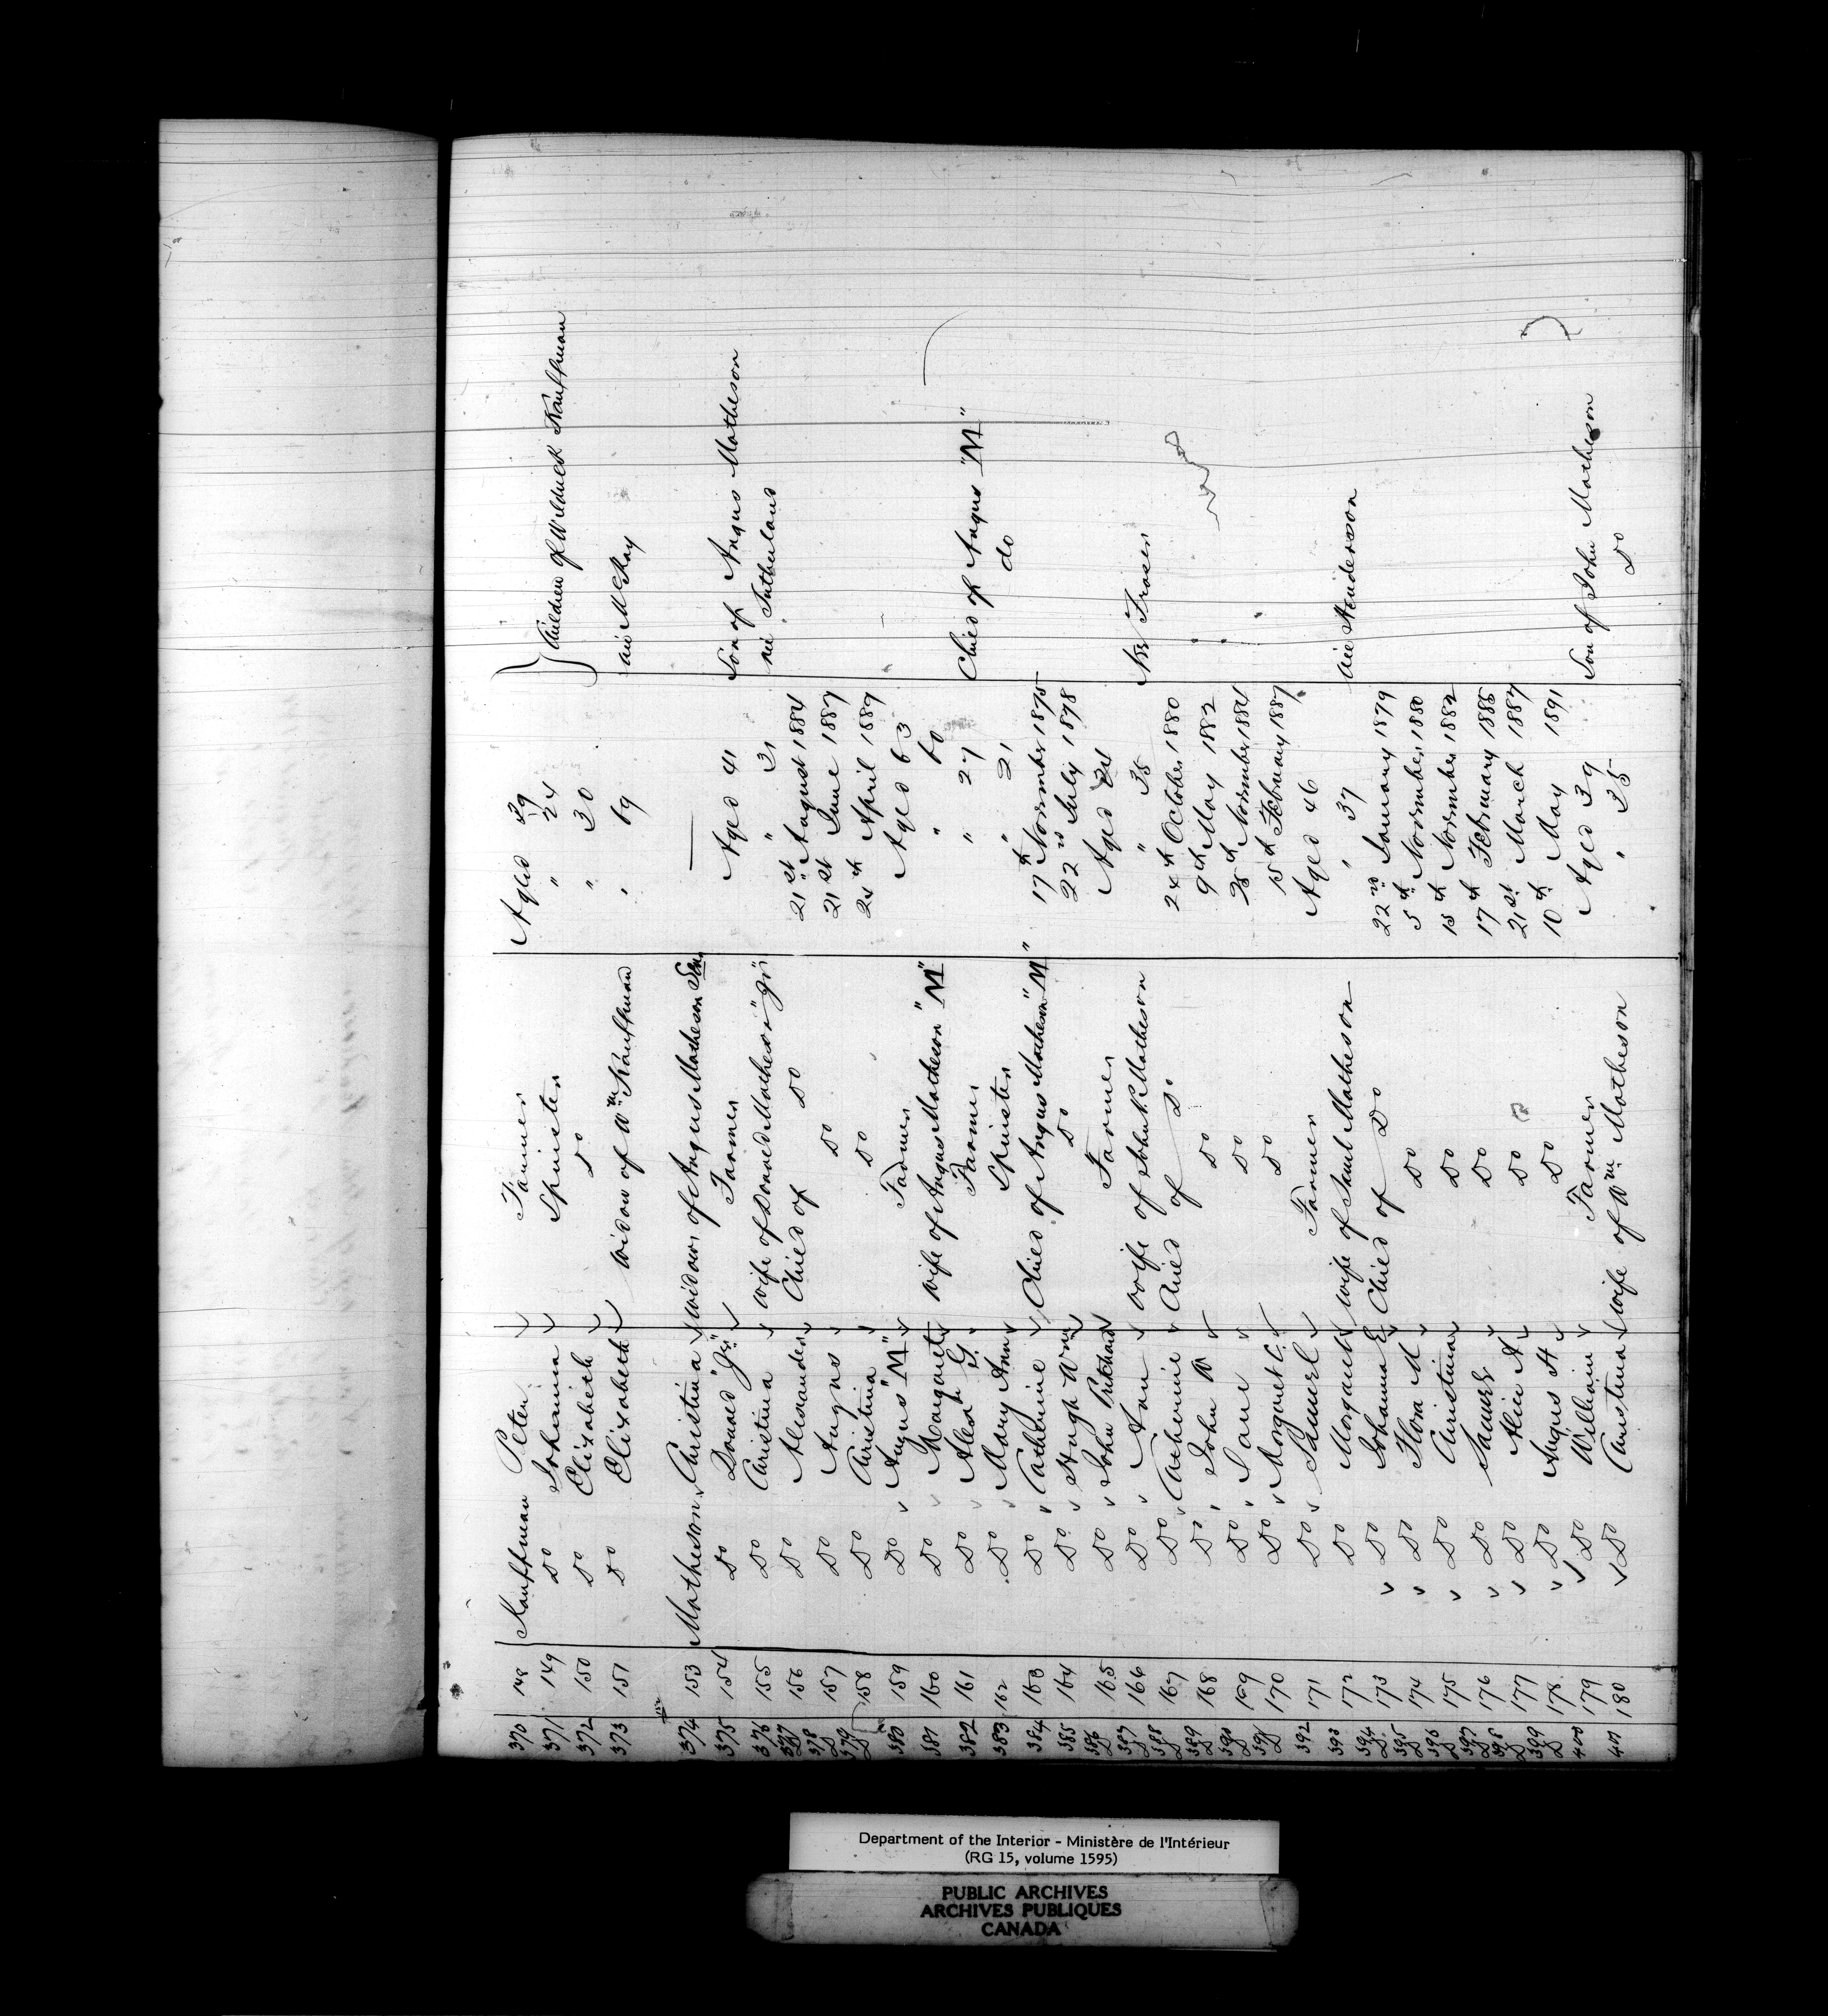 370 148 Kauffman Peter Farmer Aged 39
371 149 Do Johanna Spinster " 24 } Children of Kauffman
372 150 Do Elizabeth Do " 30
373 151 Do Elizabeth Widow of Wm Kauffman " 69 McKay
374 153 Matheson Christina Widow of Angus Matheson Sen. —
375 154 Do Donald "Gri" Farmer Aged 41 Son of Angus Matheson
376 155 Do Christina Wife of Donald Matheson "Gri" " 31 née Sutherland
377 156 Do Alexander Child of Do 21st August 1884
378 157 Do Angus Do 21st June 1887
379 158 Do Christina Do 24th April 1889
380 159 Do Angus "M" Farmer Aged 63
381 160 Do Margaret Wife of Angus Matheson "M" " 60
382 161 Do Alexr G. Farmer " 27 Child of Angus "M"
383 162 Do Mary Ann Spinster " 21 do
384 163 Do Catherine Child of Angus Matheson "M" 17th November 1875
385 164 Do Hugh Wm Do 22nd July 1878
386 165 Do John Pritchard Farmer Aged
387 166 Do Ann Wife of John P. Matheson " 35 Fraser
388 167 Do Catherine Child of Do 24th October 1880
389 168 Do John W Do 9th May 1882
390 169 Do Jane Do November 1884
391 170 Do Margaret C. Do 15th February 1887
392 171 Do Samuel Farmer Aged 46
393 172 Do Margaret Wife of Saml Matheson " 37 née Henderson
394 173 Do Johanna E Child of Do 22nd January 1879
395 174 Do Flora M Do 5th November 1880
396 175 Do Christina Do 15th November 1882
397 176 Do Samuel Do 17th February 1885
398 177 Do Alice A Do 21st March 1887
399 178 Do Angus H Do 10th May 1891
400 179 Do William Farmer Aged 39 Son of John Matheson
401 180 Do Christina Wife of Wm Matheson " 35 Do
Department of the Interior - Ministère de l'Intérieur
(RG 15, volume 1595)
PUBLIC ARCHIVES
ARCHIVES PUBLIQUES
CANADA